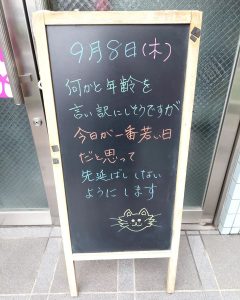 9月8日(木)
何かと年齢を
言い訳にしそうですが
今日が一番若い日
だと思って
先延ばししない
ようにします